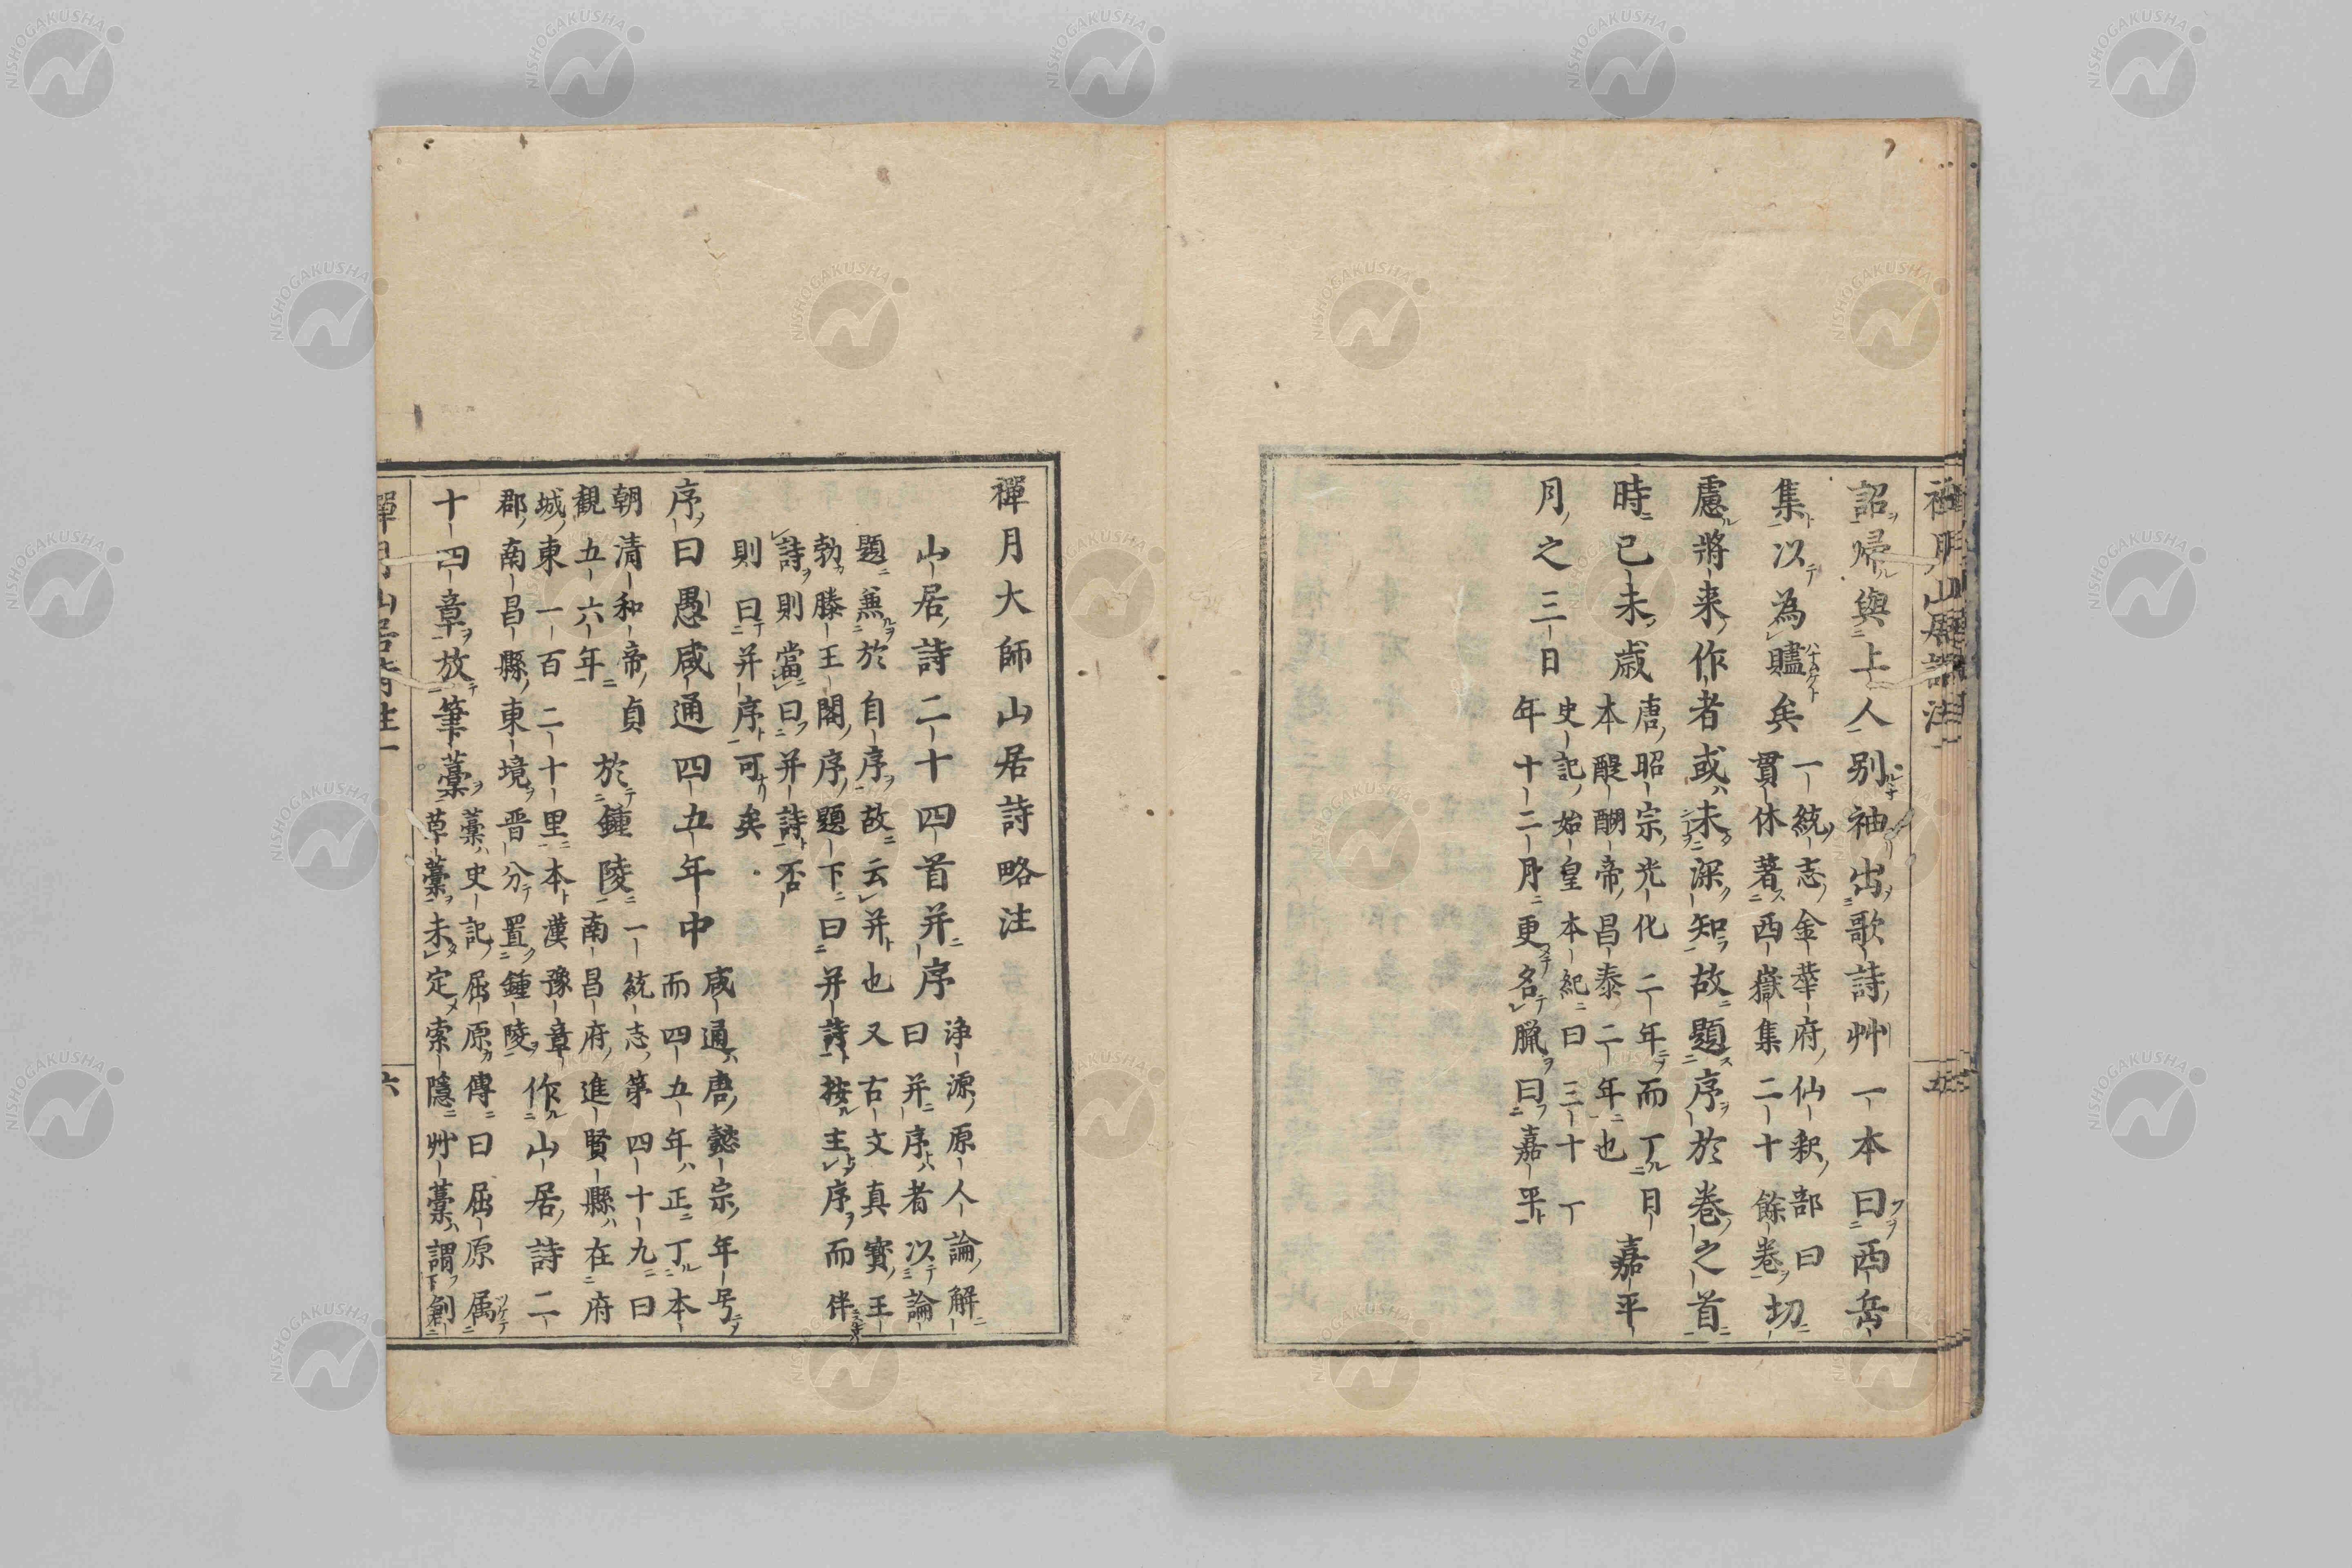 詔帰與上人別袖出歌詩艸一本曰西岳
集以為贐矣
一統志金華府仙釈部曰
貫休著西嶽集二十餘卷
切
慮將来作者或未深知故題序於卷之首
時己未歳
唐昭宗光化二年而丁日
本醍醐帝昌泰二年也
嘉平
月之三日
史記始皇本紀曰三十丁
年十二月更名臘曰嘉平
禪月大師山居詩略注
山居詩二十四首并序
浄源原人論解
題曰并序者以論
兼於自序故云并也又古文真寳王
勃滕王閣序題下曰并詩按主序而伴
詩則當曰并詩否
則曰并序可矣
序曰愚咸通四五年中
咸通唐懿宗年号
而四五年正丁本
朝清和帝貞
観五六年
於鍾陵
一統志第四十九曰
南昌府進賢縣在府
城東一百二十里本漢豫章
郡南昌縣東境晋分置鍾陵
作山居詩二
十四章放筆藁
藁史記屈原傳曰屈原属
草藁未定索隱艸藁謂創
六
NISHOGAKUSHA